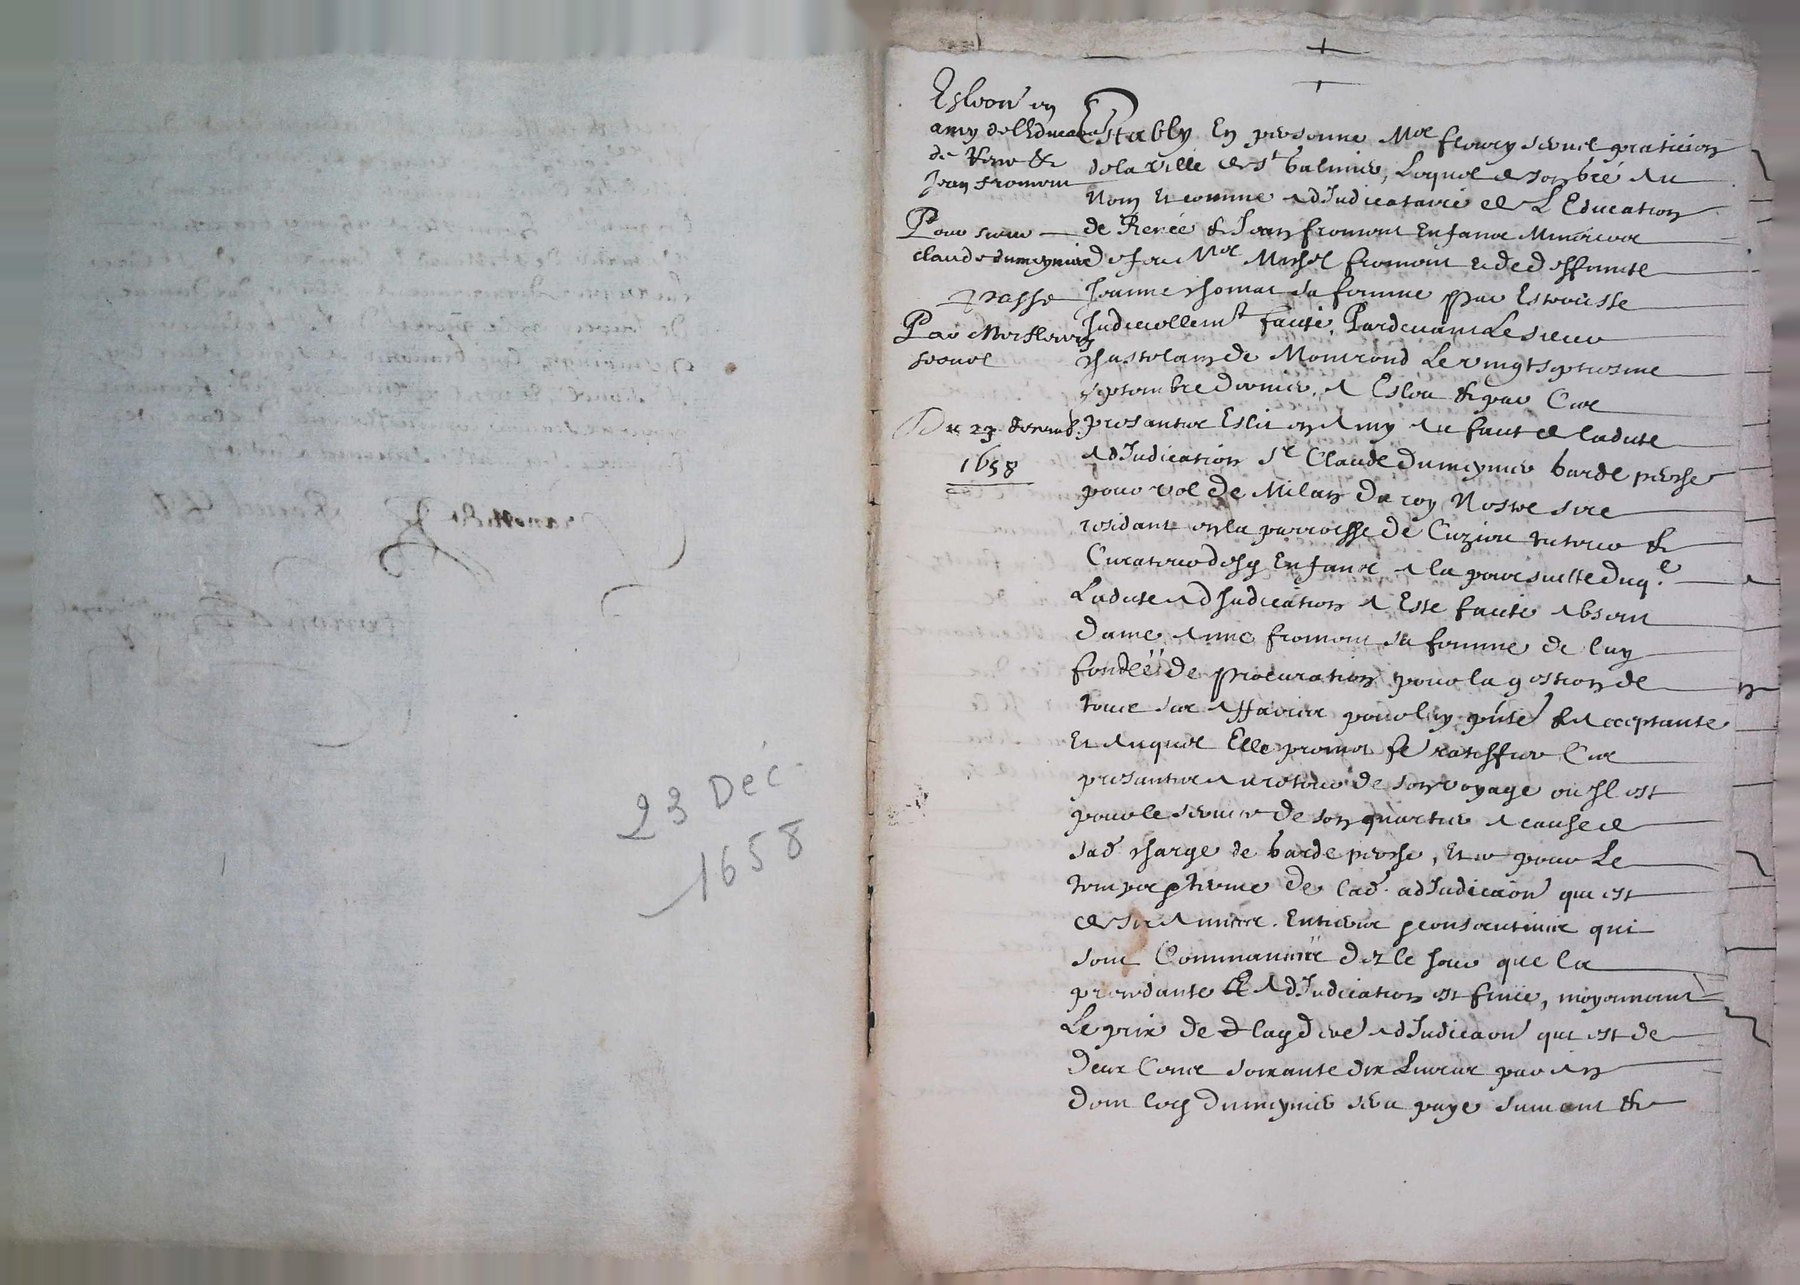 23 Dec.
1658
Esleon en
amy de l'Educaon
de Renée &
Jean fromont
Pour sieur
Claude dumeynier
passé
Par Mre fleury
Du 23 decemb.
1658
Establÿ En personne Mre fleury praticien
de la Ville de St balmier, Lequel de son gré au
Nom Et comme adJudicataire de L'Education
de Renée & Jean fromont Enfans Mineurs
de feu Mre Michel fromont et de deffuncte
Jeanne thomas sa femme par Estrousse
Judiciellemt faicte, Pardevant Le sieur
chastelain de Montrond Le vingtseptiesme
septembre dernier, a Esleu & par Ces
presantes Eslit en amy au faict de ladicte
adJudication Sr Claude dumeynier garde perche
pour vol de Milan du roy Nostre sire
residant en la parroisse de Cuzieu tuteur &
Curateur desd Enfans a la poursuitte duq.l
Ladicte adJudication a Esté faicte absent
dame Anne fromont sa femme de luy
fondéé de procuration pour la gestion de
toutes ses affaires pour luy pnte & acceptante
Et auquel Elle promet fe ratiffier Ces
presantes au retour de son voyage ou Jl est
pour le service de son quartier a cause de
sad charge de garde perche, Et ce pour Le
temps & terme de lad. adJudicaon qui est
de six années Entieres & consecutives qui
sont Commancees dez le Jour que la
precedante adJudication est finie, moyennant
Le prix de lad adJudicaon qui est de
deux Cens soixante dix Livres par an
dont led dumeynier sera payé suivant &